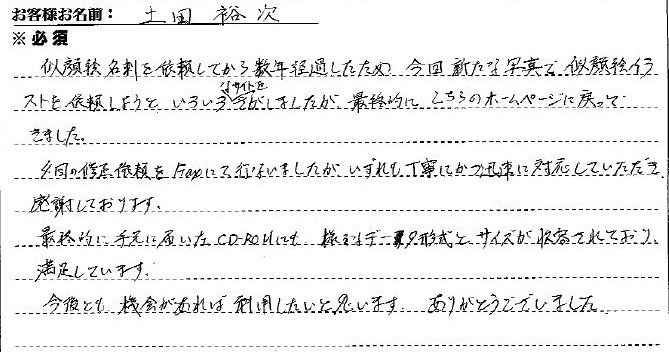 お客様お名前： 土田 裕次
※必須
似顔絵名刺を依頼してから数年経過したため 今回新たな写真で似顔絵イラ
ストを依頼しようと いろいろなサイトをさがしましたが、最終的に こちらのホームページに戻って
きました。
4回の修正依頼をFaxにて行ないましたが いずれも丁寧にかつ迅速に対応していただき
感謝しております。
最終的に手元に届いたCD-ROMにも 様々なデータ形式と サイズが収容されており、
満足しています。
今後とも 機会があれば利用したいと思います ありがとうございました